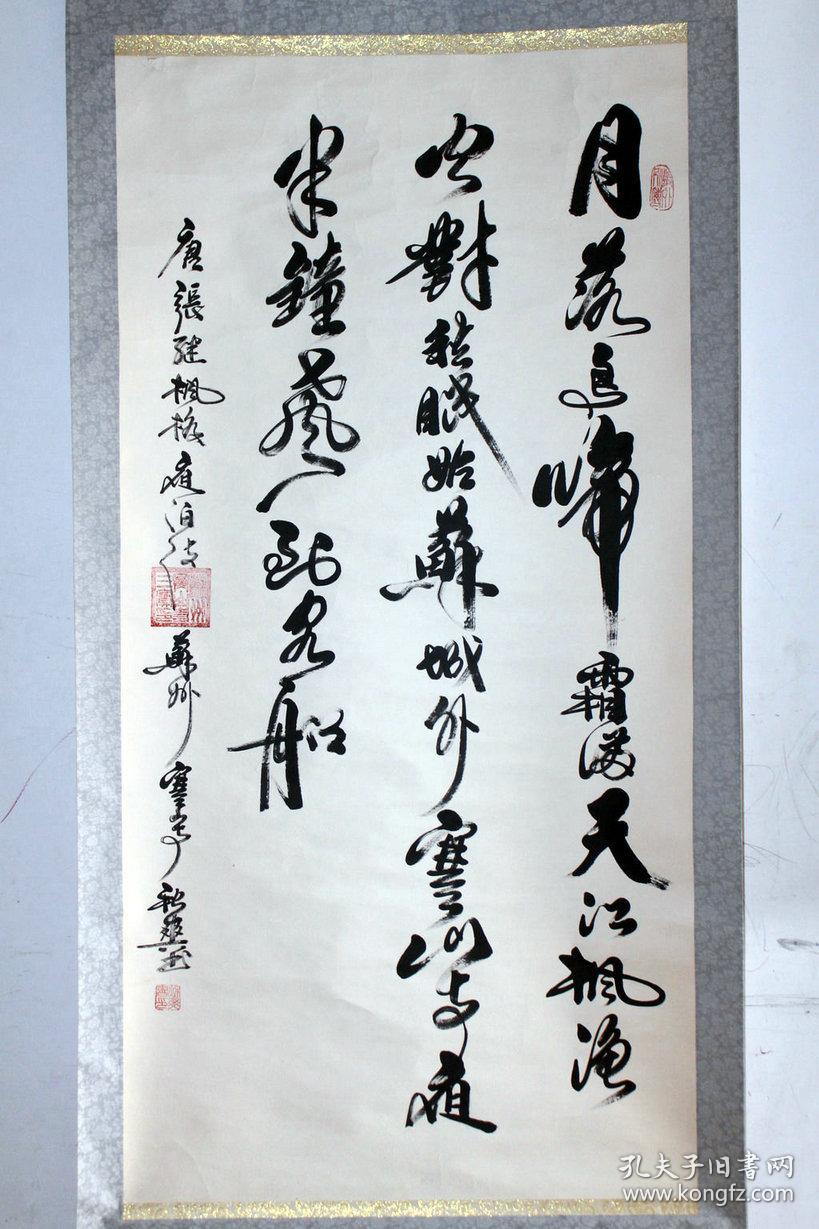 月落烏啼霜滿天江楓漁
火對愁眠姑蘇城外寒山寺夜
半鐘聲到客船
唐張繼楓橋夜泊诗
蘇州寒山寺 秋爽書
孔夫子旧書网
www.kongfz.com